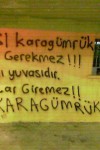 karagümrük
Gerekmez!!!
yuvasıdır,
Giremez!!
KARAGÜMRÜK